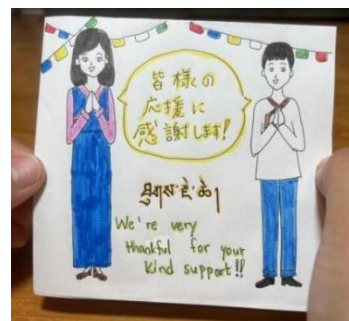 皆様の
応援に
感謝します!
ཐུགས་རྗེ་ཆེ།
We're very
thankful for your
kind support!!